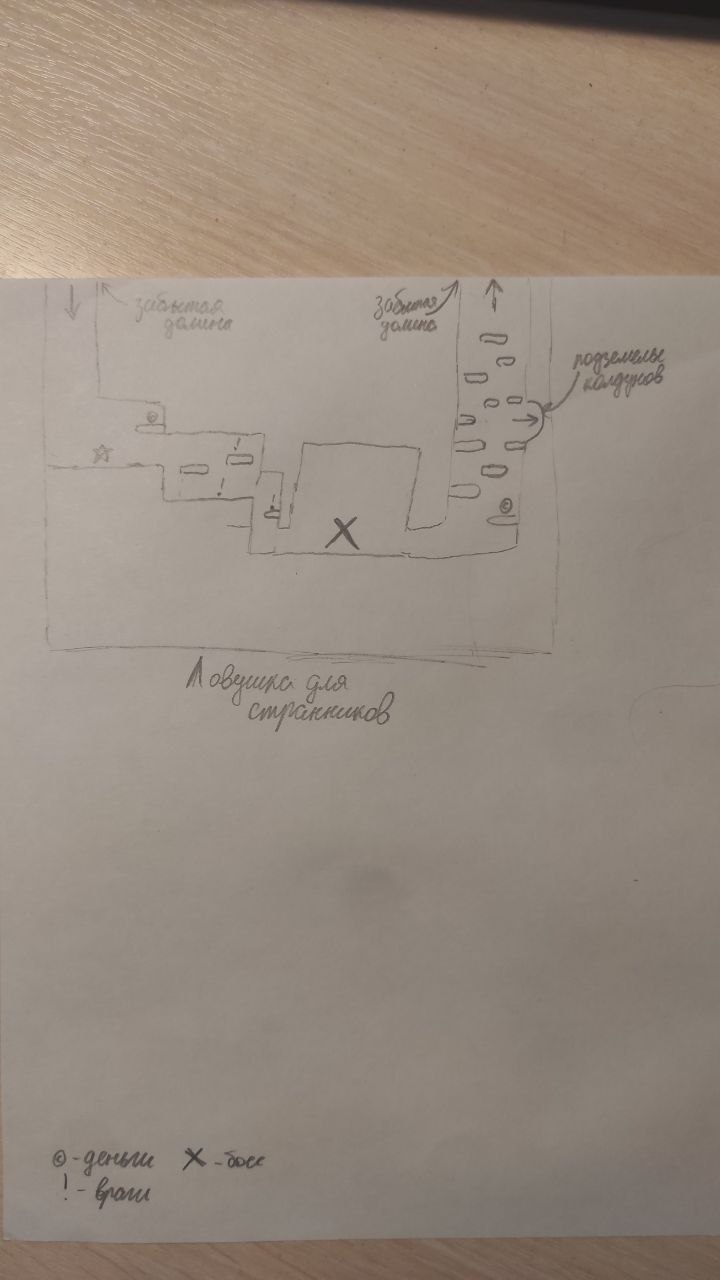 забытая
долина
забытая
долина
подземелье
колдунов
Ловушка для
странников
© - деньги X - босс
! - враги